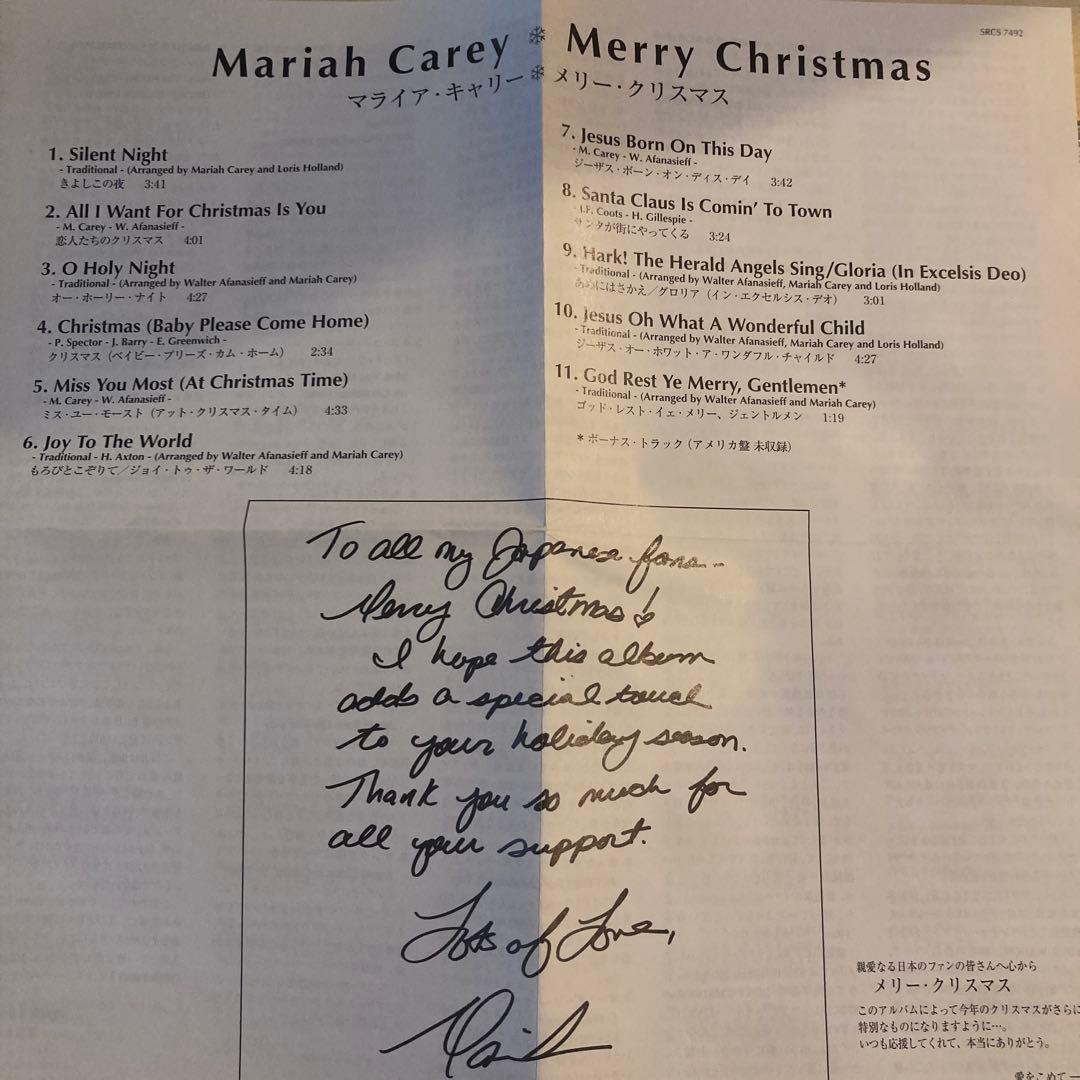 SRCS 7492
Mariah Carey ❄ Merry Christmas
マライア・キャリー ❄ メリー・クリスマス
1. Silent Night
- Traditional - (Arranged by Mariah Carey and Loris Holland)
きよしこの夜 3:41
2. All I Want For Christmas Is You
- M. Carey - W. Afanasieff -
恋人たちのクリスマス 4:01
3. O Holy Night
- Traditional - (Arranged by Walter Afanasieff and Mariah Carey)
オー・ホーリー・ナイト 4:27
4. Christmas (Baby Please Come Home)
- P. Spector - J. Barry - E. Greenwich -
クリスマス（ベイビー・プリーズ・カム・ホーム） 2:34
5. Miss You Most (At Christmas Time)
- M. Carey - W. Afanasieff -
ミス・ユー・モースト（アット・クリスマス・タイム） 4:33
6. Joy To The World
- Traditional - H. Axton - (Arranged by Walter Afanasieff and Mariah Carey)
もろびとこぞりて／ジョイ・トゥ・ザ・ワールド 4:18
7. Jesus Born On This Day
- M. Carey - W. Afanasieff -
ジーザス・ボーン・オン・ディス・デイ 3:42
8. Santa Claus Is Comin' To Town
- J.F. Coots - H. Gillespie -
サンタが街にやってくる 3:24
9. Hark! The Herald Angels Sing/Gloria (In Excelsis Deo)
- Traditional - (Arranged by Walter Afanasieff, Mariah Carey and Loris Holland)
あめにはさかえ／グロリア（イン・エクセルシス・デオ） 3:01
10. Jesus Oh What A Wonderful Child
- Traditional - (Arranged by Walter Afanasieff, Mariah Carey and Loris Holland)
ジーザス・オー・ホワット・ア・ワンダフル・チャイルド 4:27
11. God Rest Ye Merry, Gentlemen*
- Traditional - (Arranged by Walter Afanasieff and Mariah Carey)
ゴッド・レスト・イェ・メリー、ジェントルメン 1:19
* ボーナス・トラック（アメリカ盤 未収録）
To all my Japanese fans...
Merry Christmas!
I hope this album
adds a special touch
to your holiday season.
Thank you so much for
all your support.
Lots of Love,
Mariah
親愛なる日本のファンの皆さんへ心から
メリー・クリスマス
このアルバムによって今年のクリスマスがさらに
特別なものになりますように…。
いつも応援してくれて、本当にありがとう。
愛をこめて